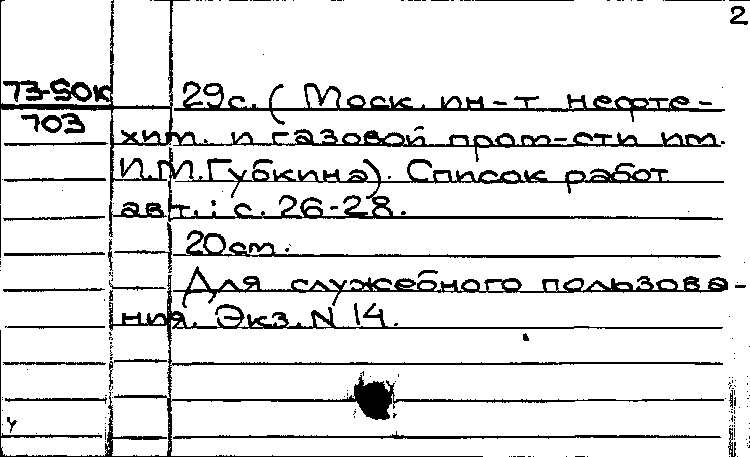 2
73-50к
703
29с. (Моск. ин-т нефте-
хим. и газовой пром-сти им.
И.М.Губкина). Список работ
авт.: с. 26-28.
20см.
Для служебного пользова-
ния. Экз. N 14.